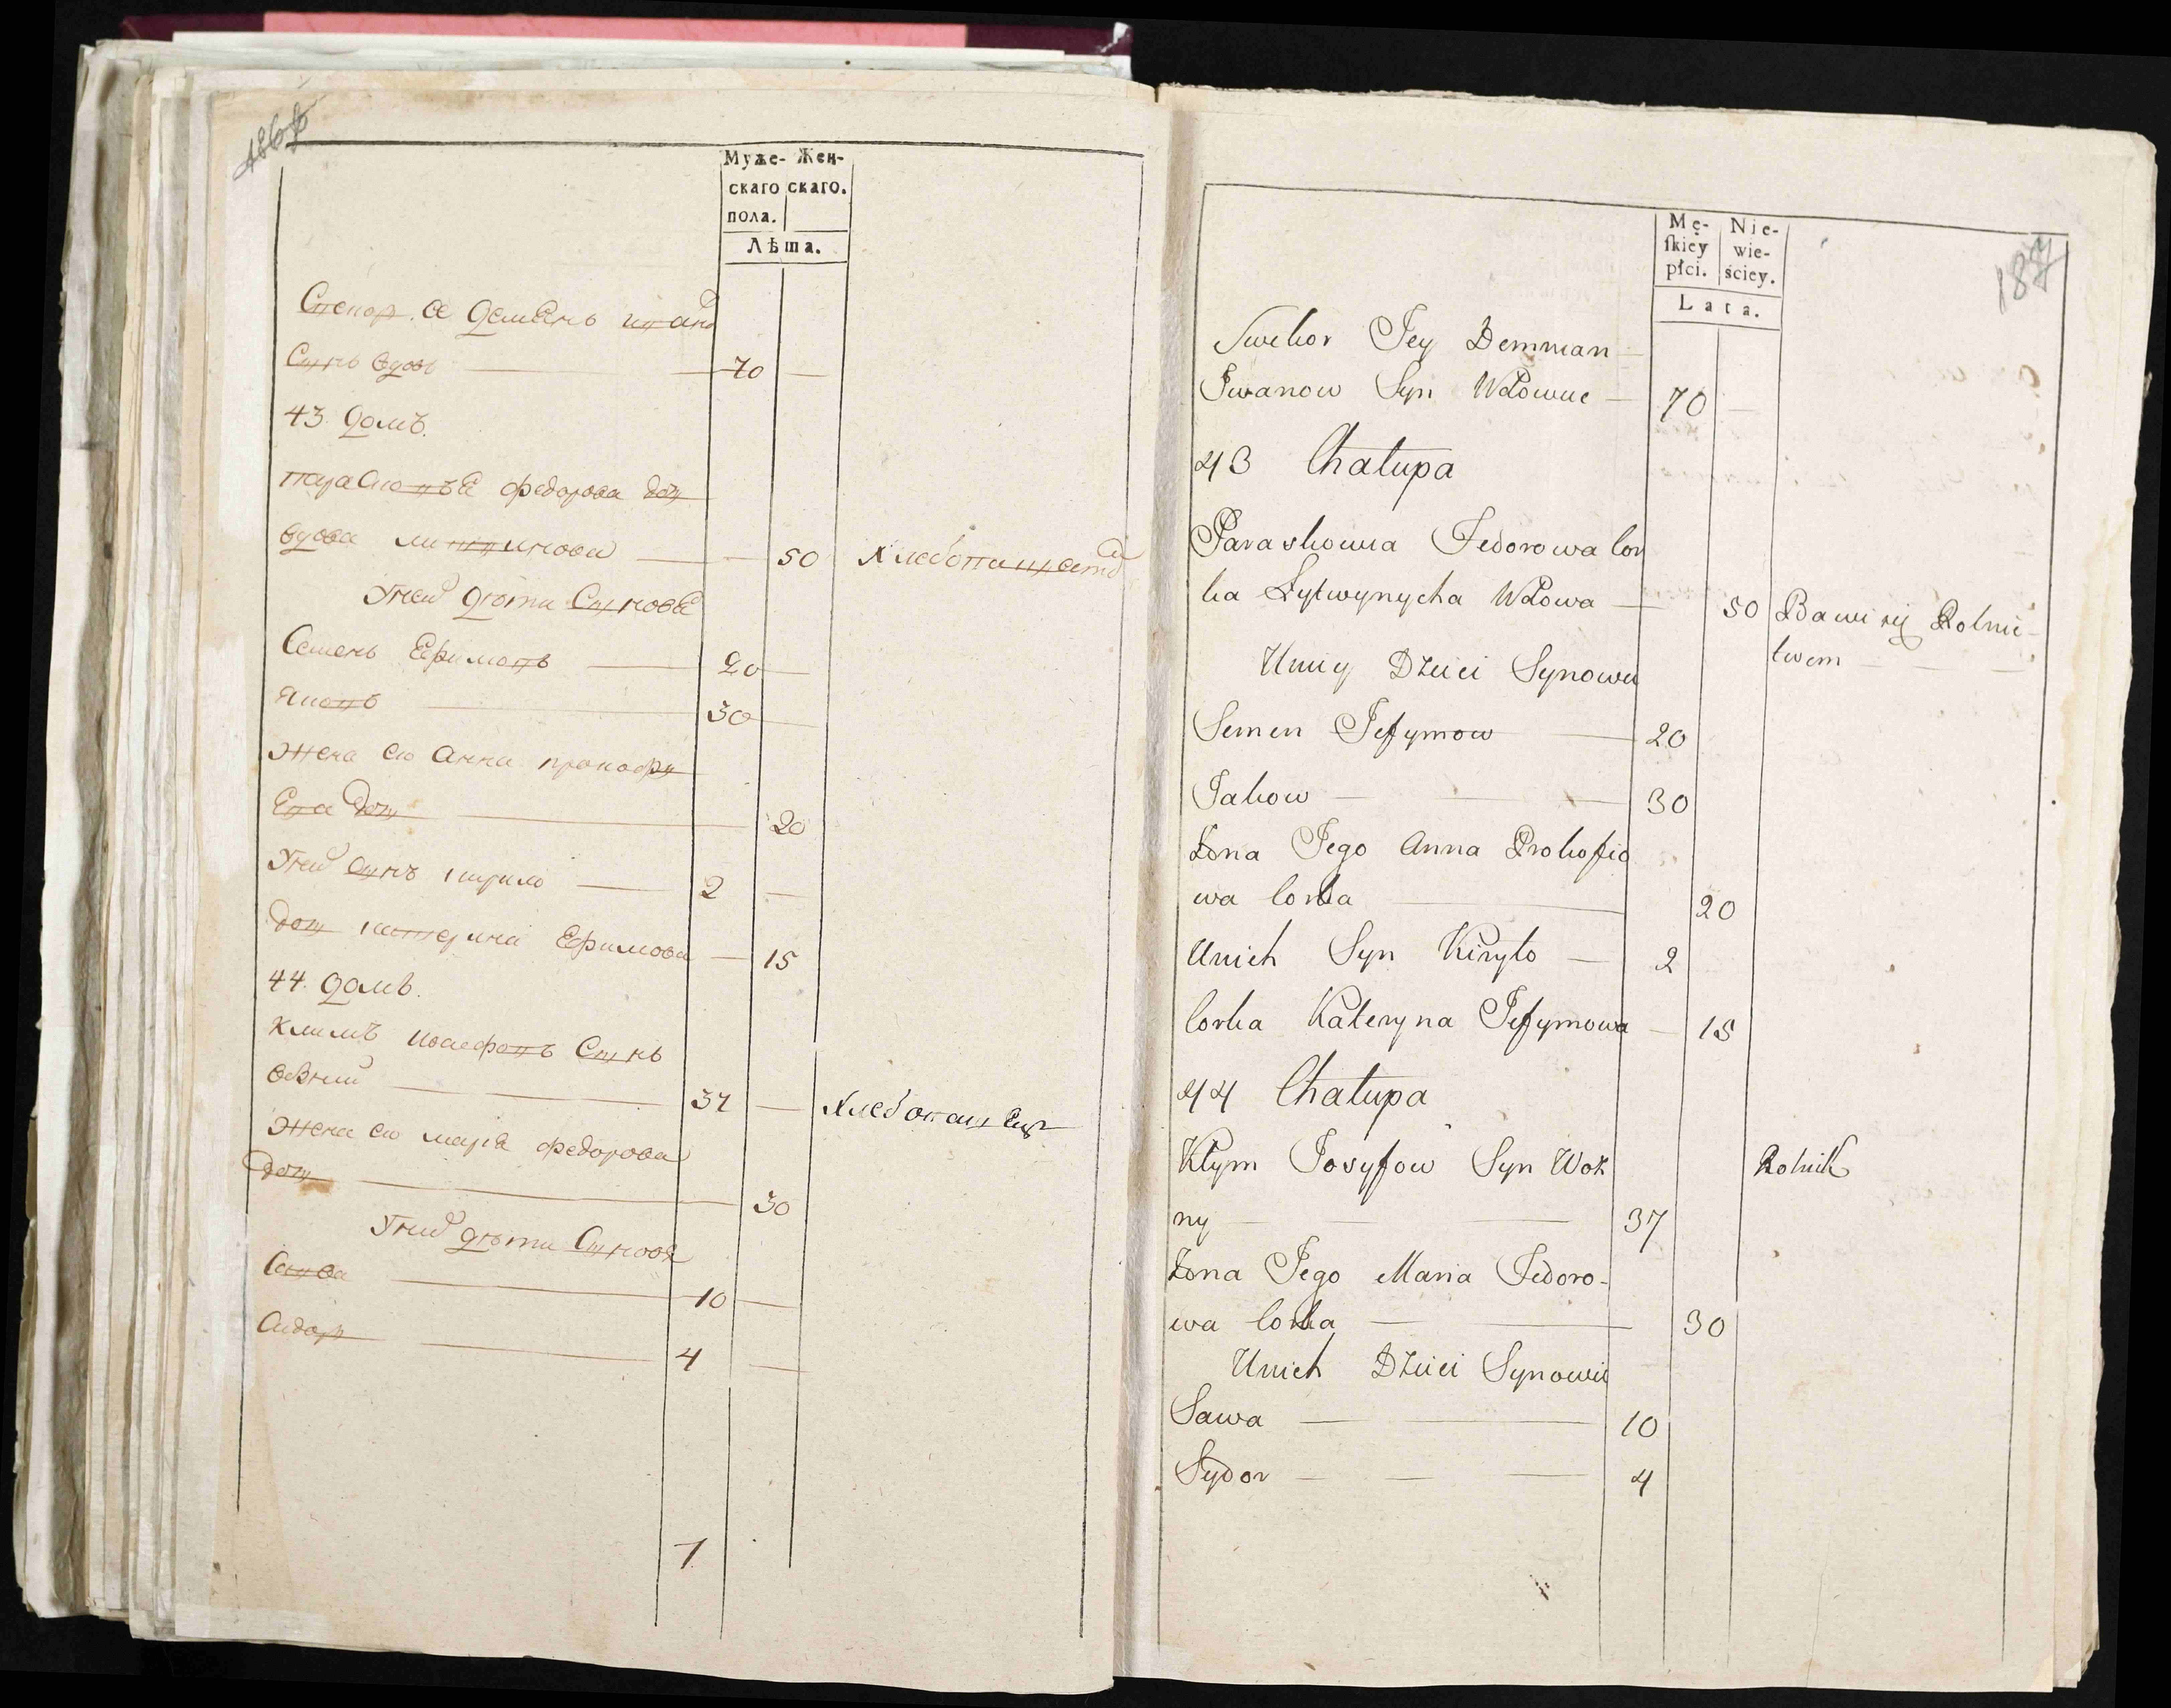 186
Муже- Жен-
скаго скаго.
пола.
Лѣта.
Свекор. ее Демѣнь иван
Сынъ вдов 70
43. домъ.
Парасковѣѣ Федорова доч
вдова литвинова 50 Хлебопашеств
У ней дѣти Сыновѣ
Семень Ефимовъ 20
Яковъ 30
Жена его Анна прокофи
Ева доч 20
У ней сынъ кирило 2
доч катерина Ефимова 15
44. домъ.
Климъ Иосефовъ Сынъ
возний 37 Хлебопашец
Жена его марѣя федорова
доч 30
У ней дѣти Сыновя
Сава 10
Сидор 4
7
187
Mę- Nie-
skiey wie-
płci. ściey.
Lata.
Swekor Jey Demmian
Iwanow Syn Wdowiec 70
43 Chałupa
Paraskowia Fedorowa cor
ka Lytwynycha Wdowa 50 Bawi się Rolnic-
twem
U niey Dzieci Synowie
Semen Jefymow 20
Jakow 30
Żona Jego Anna Prokofio
wa corka 20
U nich Syn Kiryło 2
Corka Kateryna Jefymowa 15
44 Chałupa
Kłym Josyfow Syn Woz Rolnik
ny 37
Żona Jego Maria Fedoro-
wa corka 30
U nich Dzieci Synowie
Sawa 10
Sydor 4